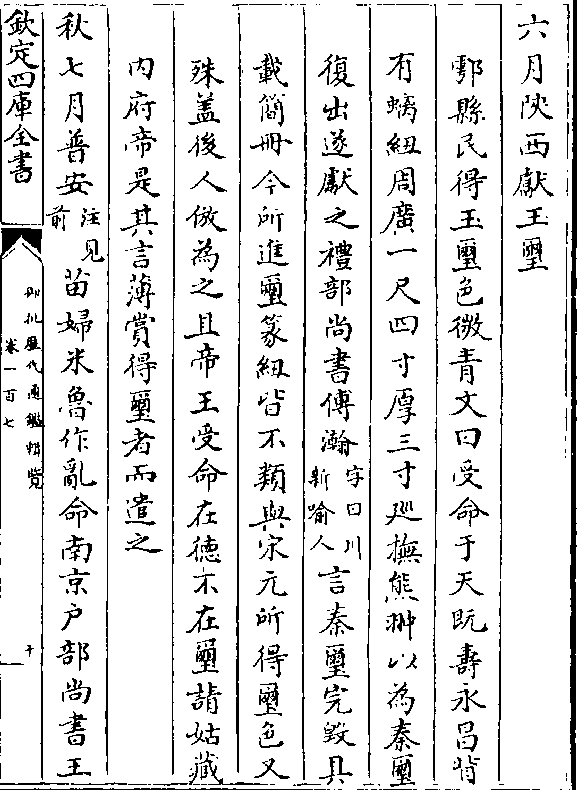 六月陝西獻玉璽
鄠縣民得玉璽色微青文曰受命于天既壽永昌背
有螭紐周廣一尺四寸厚三寸廵撫熊翀以為秦璽
復出遂獻之禮部尚書傅瀚字曰川新喻人言秦璽完毀具
載簡冊今所進璽篆紐皆不類與宋元所得璽色又
殊盖後人倣為之且帝王受命在德不在璽請姑藏
内府帝是其言薄賞得璽者而遣之
秋七月普安注見前苗婦米魯作亂命南京户部尚書王
欽定四庫全書
御批歷代通鑑輯覽
卷一百七
十